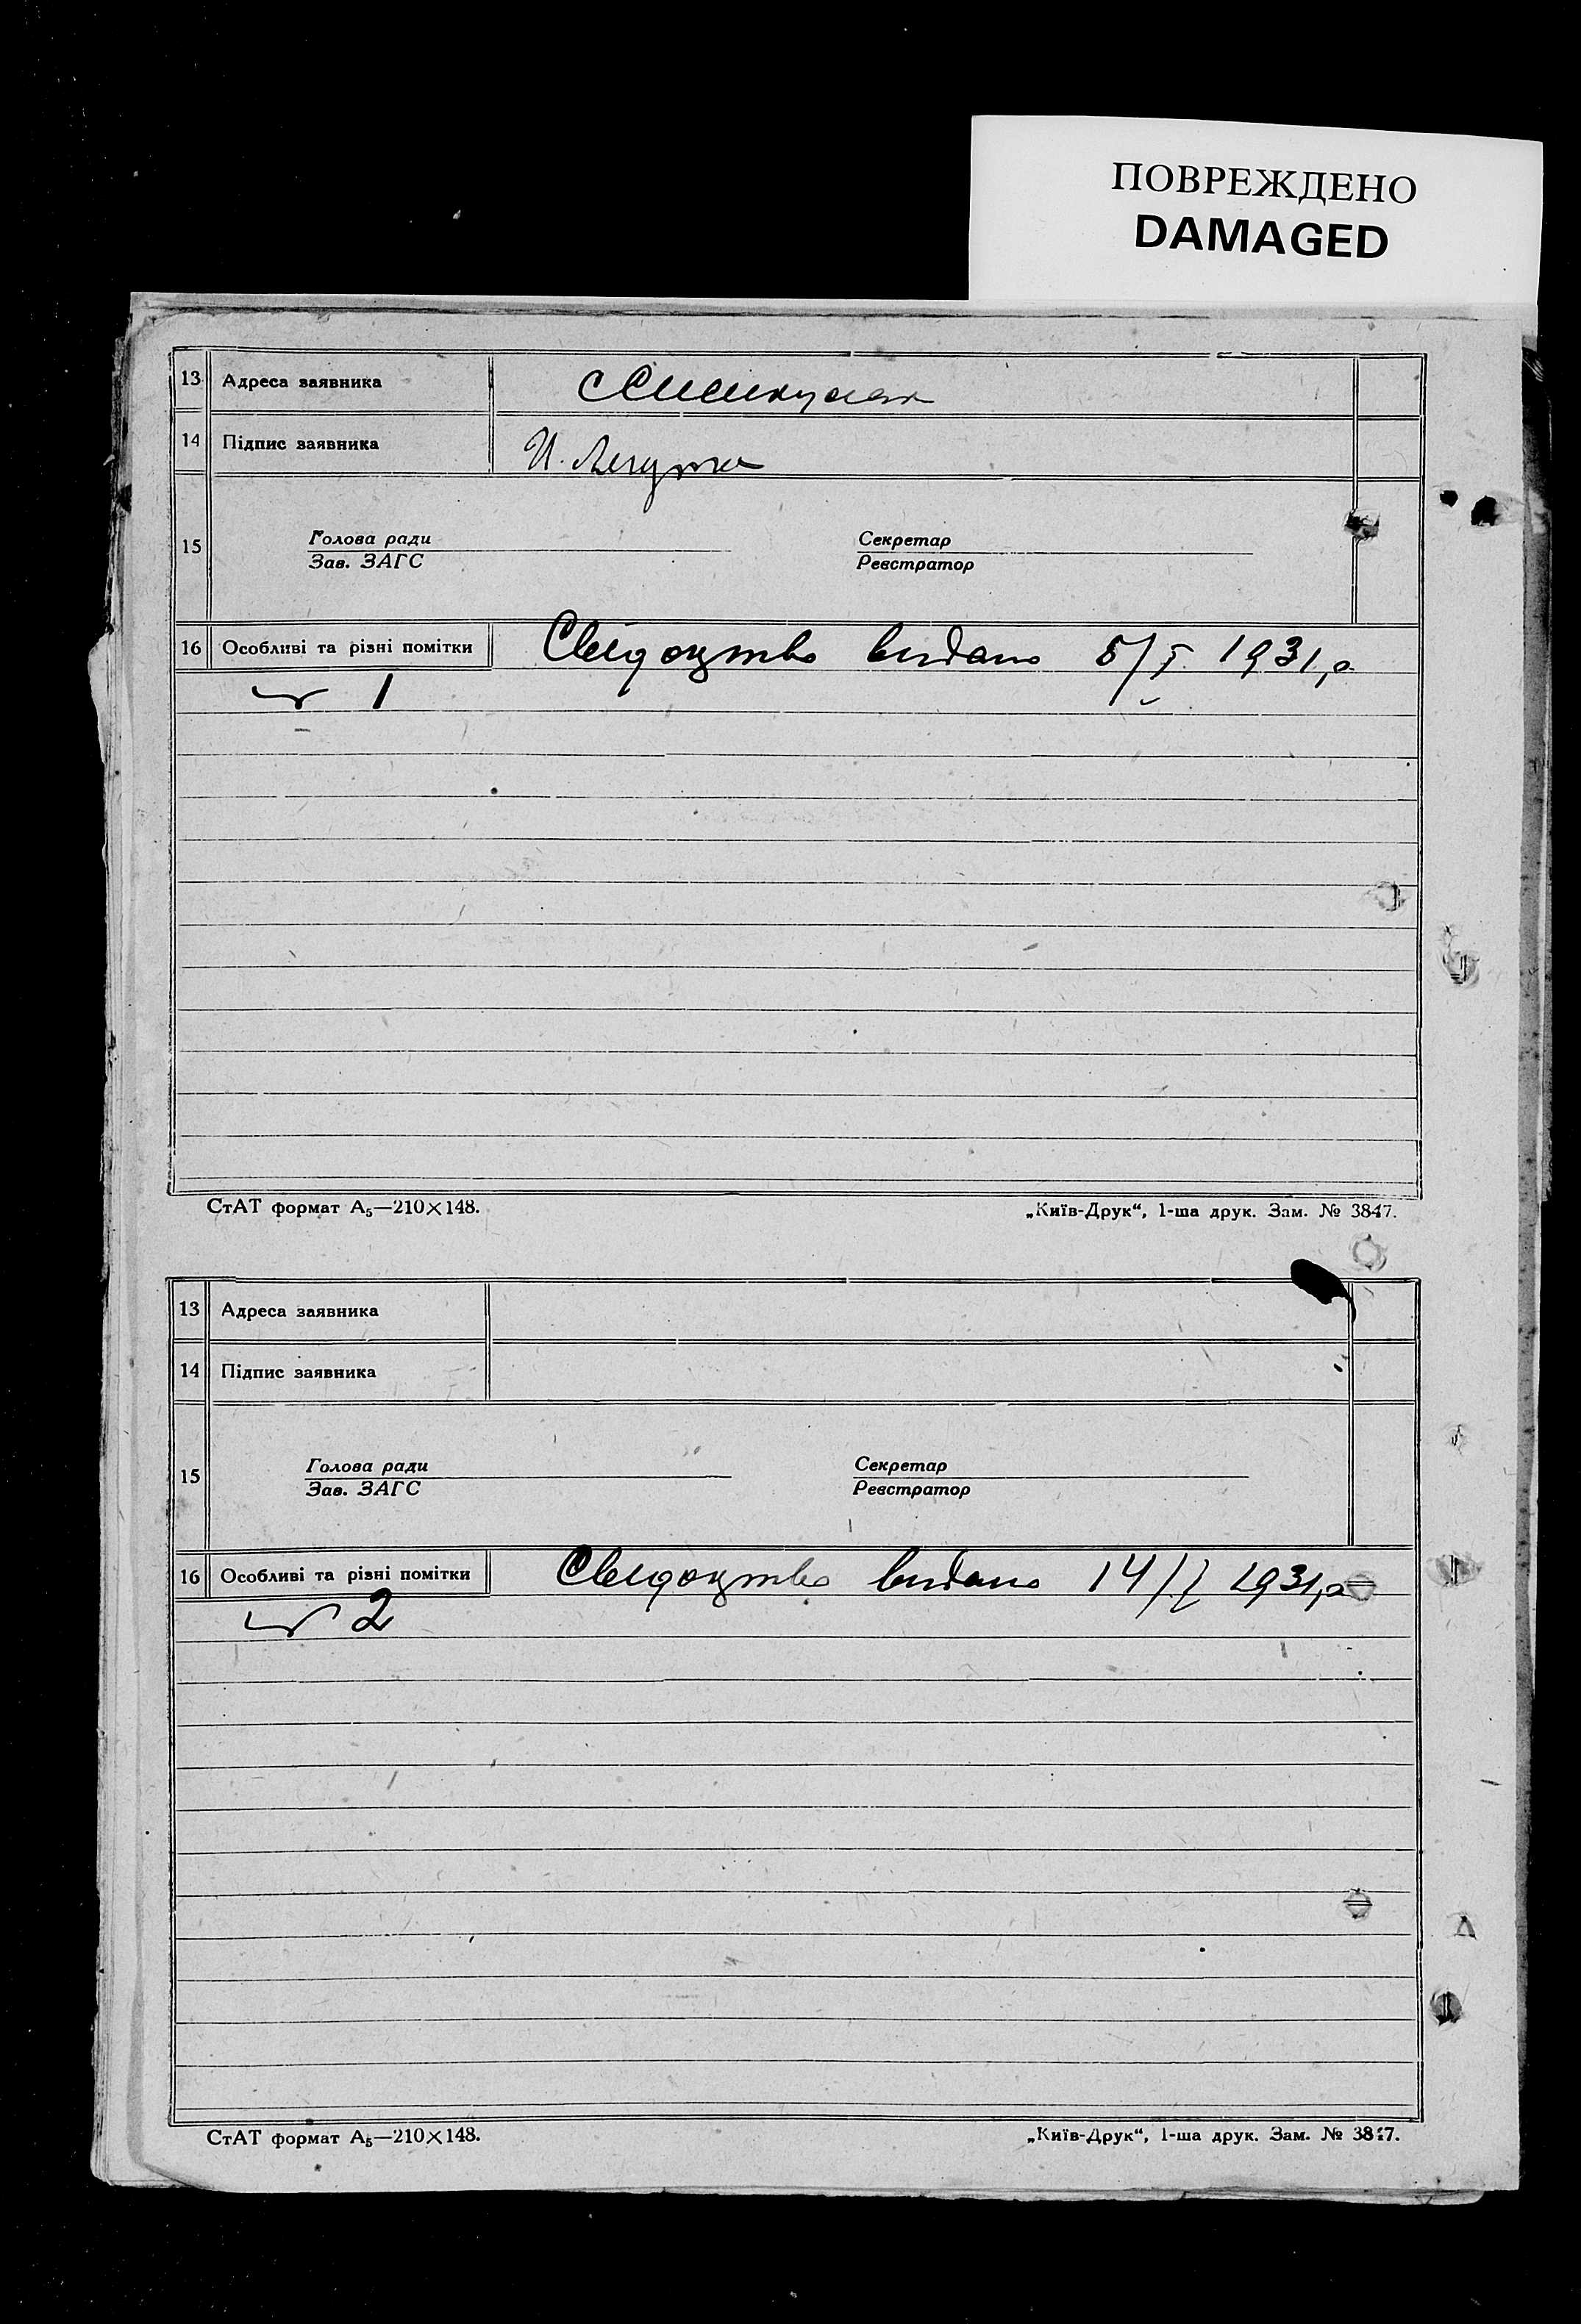 ПОВРЕЖДЕНО
DAMAGED
13 Адреса заявника
14 Підпис заявника И.
15 Голова ради Секретар
Зав. ЗАГС Реєстратор
16 Особливі та різні помітки Свідоцтво видано 5/I 1931 р
№ 1
СтАТ формат А₅—210×148. „Київ-Друк“, 1-ша друк. Зам. № 3847.
13 Адреса заявника
14 Підпис заявника
15 Голова ради Секретар
Зав. ЗАГС Реєстратор
16 Особливі та різні помітки Свідоцтво видано 14/I 1931 р
№ 2
СтАТ формат А₅—210×148. „Київ-Друк“, 1-ша друк. Зам. № 3847.